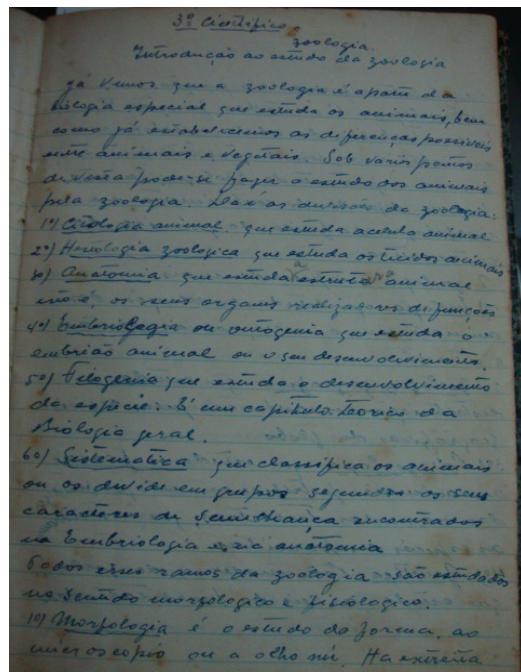 3º Científico.
zoologia.
Introdução ao estudo da zoologia
Já vimos que a zoologia é a parte da
biologia especial que estuda os animais, bem
como já estabelecemos as diferenças possiveis
entre animais e vegetais. Sob varios pontos
de vista pode-se fazer o estudo dos animais
pela zoologia. as divisão da zoologia:
1º) Citologia animal que estuda a celula animal
2º) Histologia zoologica que estuda os tecidos animais
3º) Anatomia que estuda a estrutura animal
isto é, os seus orgams realizadores de funções
4º) Embriologia ou ontogenia que estuda o
embrião animal ou o seu desenvolvimento.
5º) Filogenia que estuda o desenvolvimento
da espécie. É um capitulo teorico da
Biologia geral.
6º) Sistematica que classifica os animais
ou os divide em grupos segundos os seus
caractéres de semelhança encontrados
na Embriologia e na anatomia
Todos esses ramos da zoologia são estudados
no sentido morfologico e fisiologico.
1º) Morfologia é o estudo da forma, ao
microscopio ou a olho nú. Ha